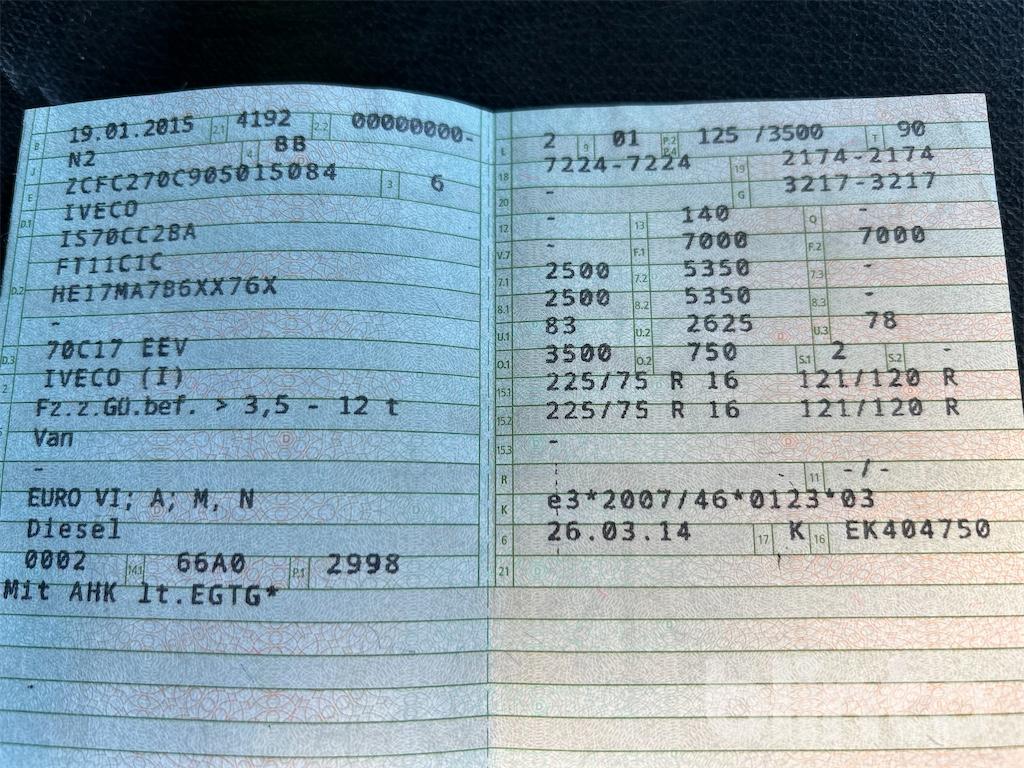 B 19.01.2015 2.1 4192 2.2 00000000-
J N2 4 BB
E ZCFC270C905015084 3 6
D.1 IVECO
IS70CC2BA
D.2 FT11C1C
HE17MA7B6XX76X
-
D.3 70C17 EEV
2 IVECO (I)
5 Fz.z.Gü.bef. > 3,5 - 12 t
Van
-
EURO VI; A; M, N
Diesel
0002 66A0 P.1 2998
Mit AHK lt.EGTG*
L 2 9 01 P.2 P.4 125 /3500 T 90
18 7224-7224 19 2174-2174
20 - G 3217-3217
12 - 13 140 Q -
V.7 - F.1 7000 F.2 7000
7.1 2500 7.2 5350 7.3 -
8.1 2500 8.2 5350 8.3 -
U.1 83 U.2 2625 U.3 78
O.1 3500 O.2 750 S.1 2 S.2 -
15.1 225/75 R 16 121/120 R
15.2 225/75 R 16 121/120 R
15.3 -
R 11 -/-
K e3*2007/46*0123*03
6 26.03.14 17 K 16 EK404750
21